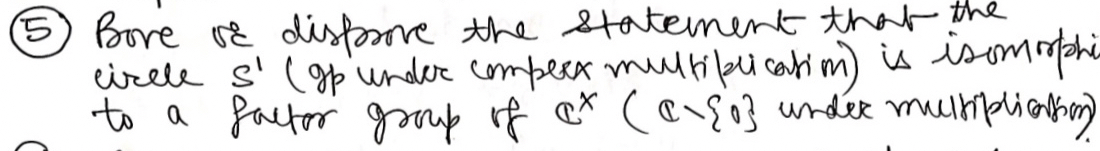 ⑤ Prove or disprove the statement that the
circle S¹ (gp under complex multiplication) is isomorphi
to a factor group of ℂˣ (ℂ∖{0} under multiplication)